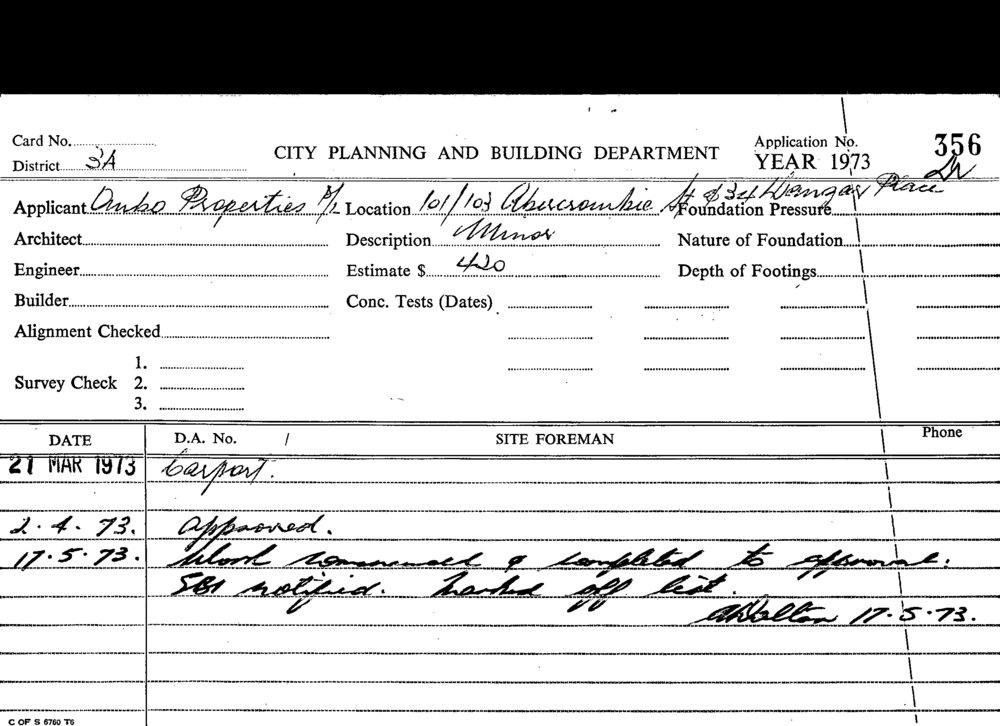 Card No. Application No. 356
District 3A CITY PLANNING AND BUILDING DEPARTMENT YEAR 1973
Applicant Properties P/L Location 101/103 Abercrombie St & 34 Dangar Place Foundation Pressure
Architect Description Minor Nature of Foundation
Engineer Estimate $ 420 Depth of Footings
Builder Conc. Tests (Dates)
Alignment Checked
1.
Survey Check 2.
3.
DATE D.A. No. / SITE FOREMAN Phone
21 MAR 1973 Carport.
2.4.73. Approved.
17.5.73. Work commenced & completed to approval.
SBI notified. Marked off list.
17.5.73.
C OF S 6760 T6